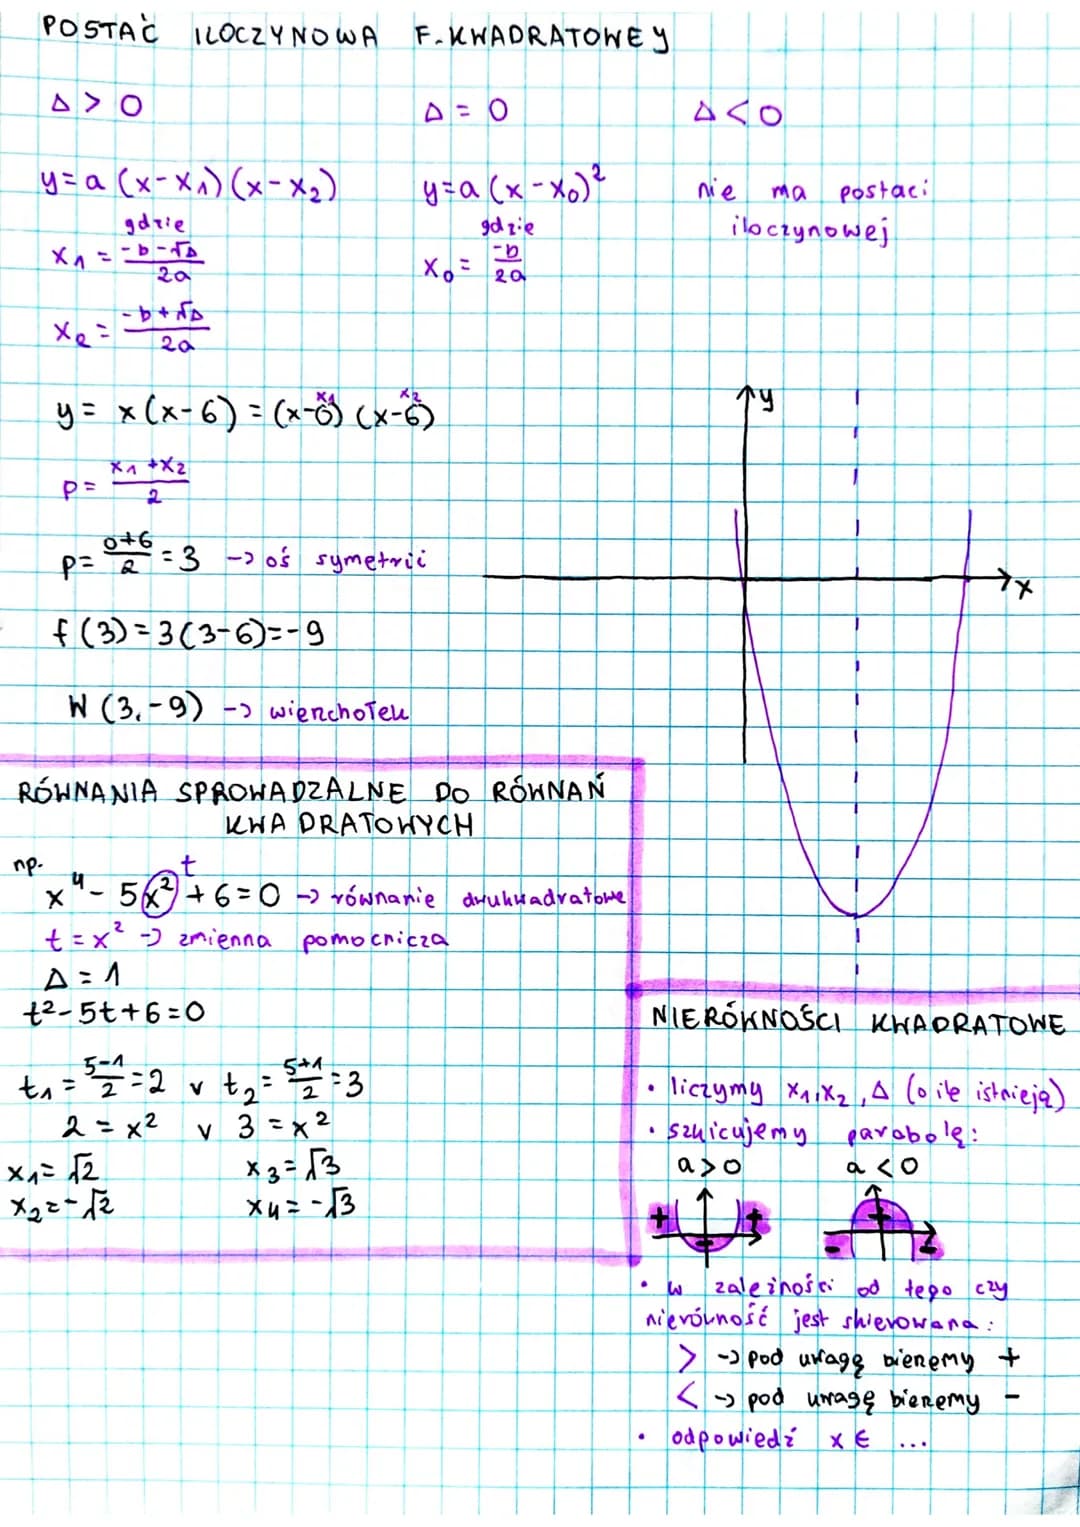 POSTAĆ ILOCZYNOWA F.KWADRATOWEJ
Δ > 0
y = a (x-x₁)(x-x₂)
gdzie
x₁ = \frac{-b-√Δ}{2a}
x₂ = \frac{-b+√Δ}{2a}
Δ = 0
y = a (x-x₀)²
gdzie
x₀ = \frac{-b}{2a}
Δ < 0
nie ma postaci
iloczynowej
x₁ x₂
y = x(x-6) = (x-0)(x-6)
p = \frac{x₁+x₂}{2}
p = \frac{0+6}{2} = 3 -> oś symetrii
f(3) = 3(3-6) = -9
W (3,-9) -> wierzchołek
y
x
RÓWNANIA SPROWADZALNE DO RÓWNAŃ
KWADRATOWYCH
np.
t
x⁴ - 5x² + 6 = 0 -> równanie dwukwadratowe
t = x² -> zmienna pomocnicza
Δ = 1
t² - 5t + 6 = 0
t₁ = \frac{5-1}{2} = 2 v t₂ = \frac{5+1}{2} = 3
2 = x² v 3 = x²
x₁ = √2 x₃ = √3
x₂ = -√2 x₄ = -√3
NIERÓWNOŚCI KWADRATOWE
• liczymy x₁,x₂,Δ (o ile istnieją)
• szkicujemy parabolę:
a > 0 a < 0
+ + +
- - -
• w zależności od tego czy
nierówność jest skierowana:
> -> pod uwagę bierzemy +
< -> pod uwagę bierzemy -
• odpowiedź x ∈ ...